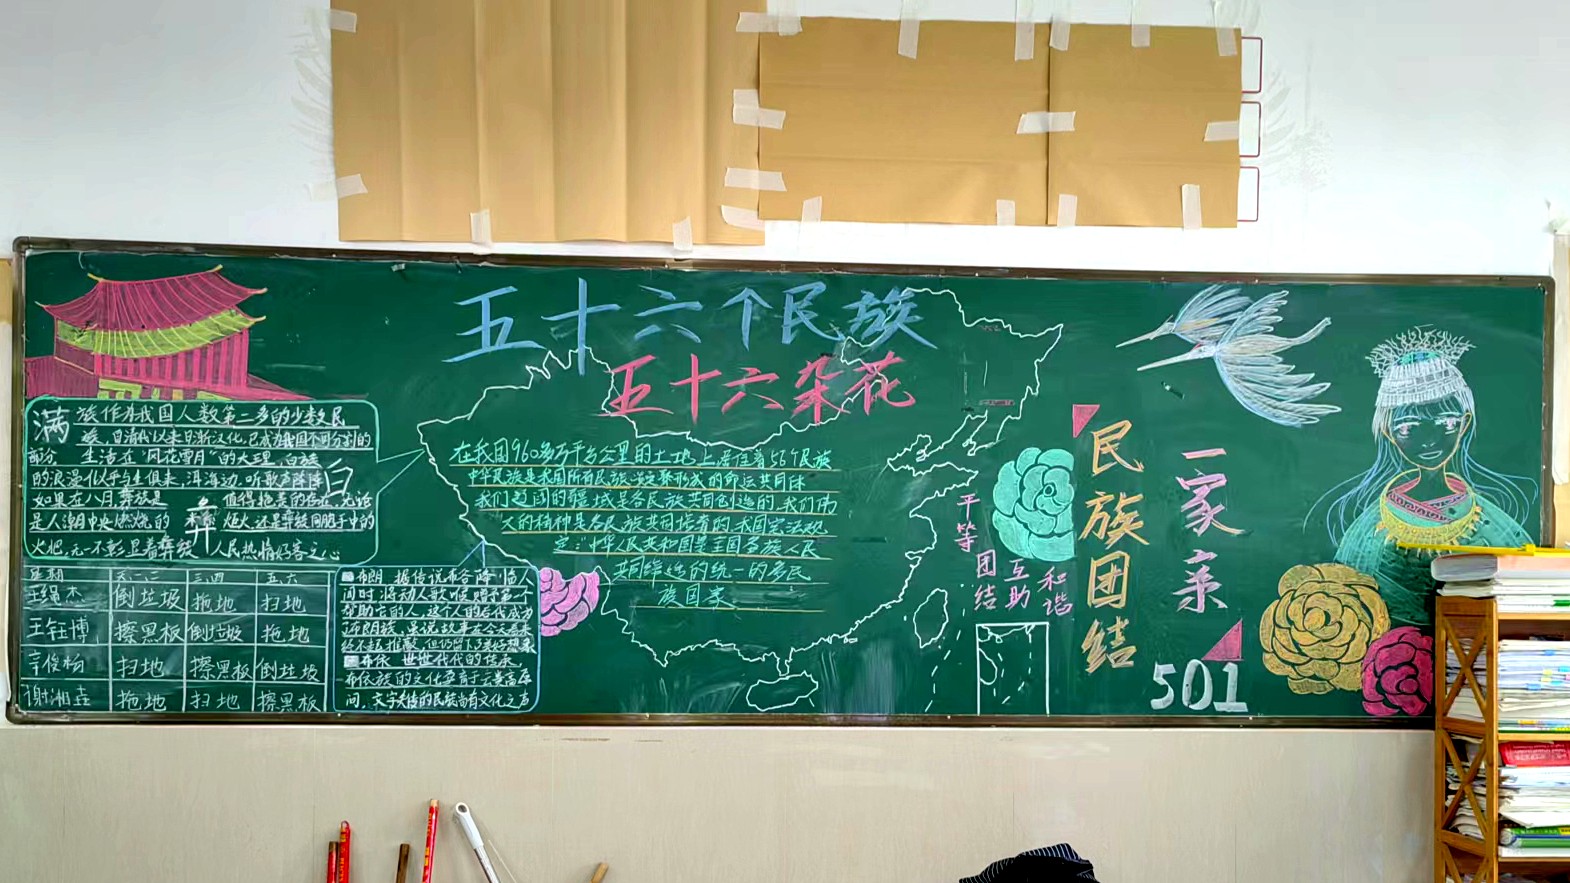 五十六个民族
五十六朵花
满族作为我国人数第二多的少数民
族，自清代以来日渐汉化，已成为我国不可分割的
部分 生活在“风花雪月”的大理，白族
的浪漫似乎与生俱来，洱海动，听歌声阵阵
如果在八月，彝族是 值得艳羡的存在，无论
是人潮中央燃烧的 炬火，还是彝族同胞手中的
火把，无一不彰显着彝族人民热情好客之心
星期 一二 三四 五六
杰 倒垃圾 拖地 扫地
王钰博 擦黑板 倒垃圾 拖地
辛俊杨 扫地 擦黑板 倒垃圾
谢湘垚 拖地 扫地 擦黑板
布朗 据传说布谷降临人
间时，将动人歌喉赠予第一个
帮助它的人，这个人的后代成为
布朗族，虽说故事在今天看来
经不起推敲，但仍留下了美好想象
布依 世世代代的传承，
布依族的文化孕育于云贵高原
间，文字失传的民族尚有文化之声
在我国960多万平方公里的土地上居住着56个民族
中华民族是我国所有民族交聚形成的命运共同体
我们辽阔的疆域是各民族共同创造的，我们伟
大的精神是各民族共同培育的，我国宪法规
定：“中华人民共和国是全国各族人民
共同缔造的统一的多民
族国家
平等
团结
互助
和谐
民族团结
一家亲
501